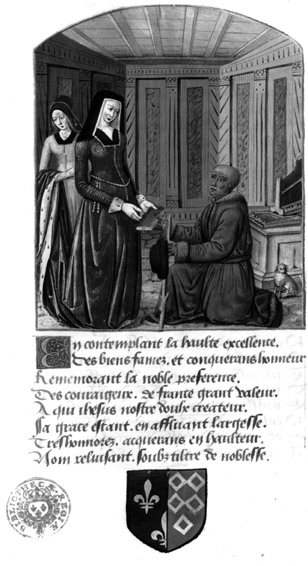 En contemplant la haulte excellence.
Des biens famez. et conquerans honneur
Rememorant la noble preference.
Des courageux. de france grant valeur.
A qui ihesus nostre doulx createur.
Sa grace estant. en assuiant largesse.
Treshonnorez. acquerans en haulteur.
Nom reluisant. soubz tiltre de noblesse.
BIBLIOTHECAE REGIAE